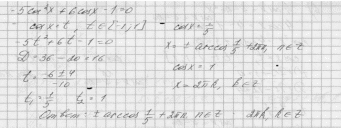 -5cos²x+6cosx-1=0
cosx=t, t∈[-1;1]
-5t²+6t-1=0
D=36-20=16
t=(-6±4)/-10
t₁=1/5 t₂=1
cosx=1/5
x=± arccos 1/5 +2πn, n∈z
cosx=1
x=2πk, k∈z
Ответ: ± arccos 1/5 +2πn, n∈z 2πk, k∈z